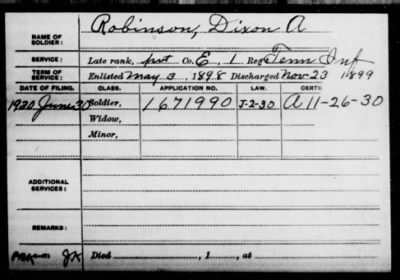 NAME OF SOLDIER: Robinson, Dixon A
SERVICE: Late rank, pvt Co. E, 1 Reg Tenn Inf
TERM OF SERVICE: Enlisted May 3, 1898 Discharged Nov 23 1899
DATE OF FILING. CLASS. APPLICATION NO. LAW. CERTI
1930 June 30 Soldier, 1671990 J-2-30 A 11-26-30
Widow,
Minor,
ADDITIONAL SERVICES:
REMARKS:
Died , 1 , at